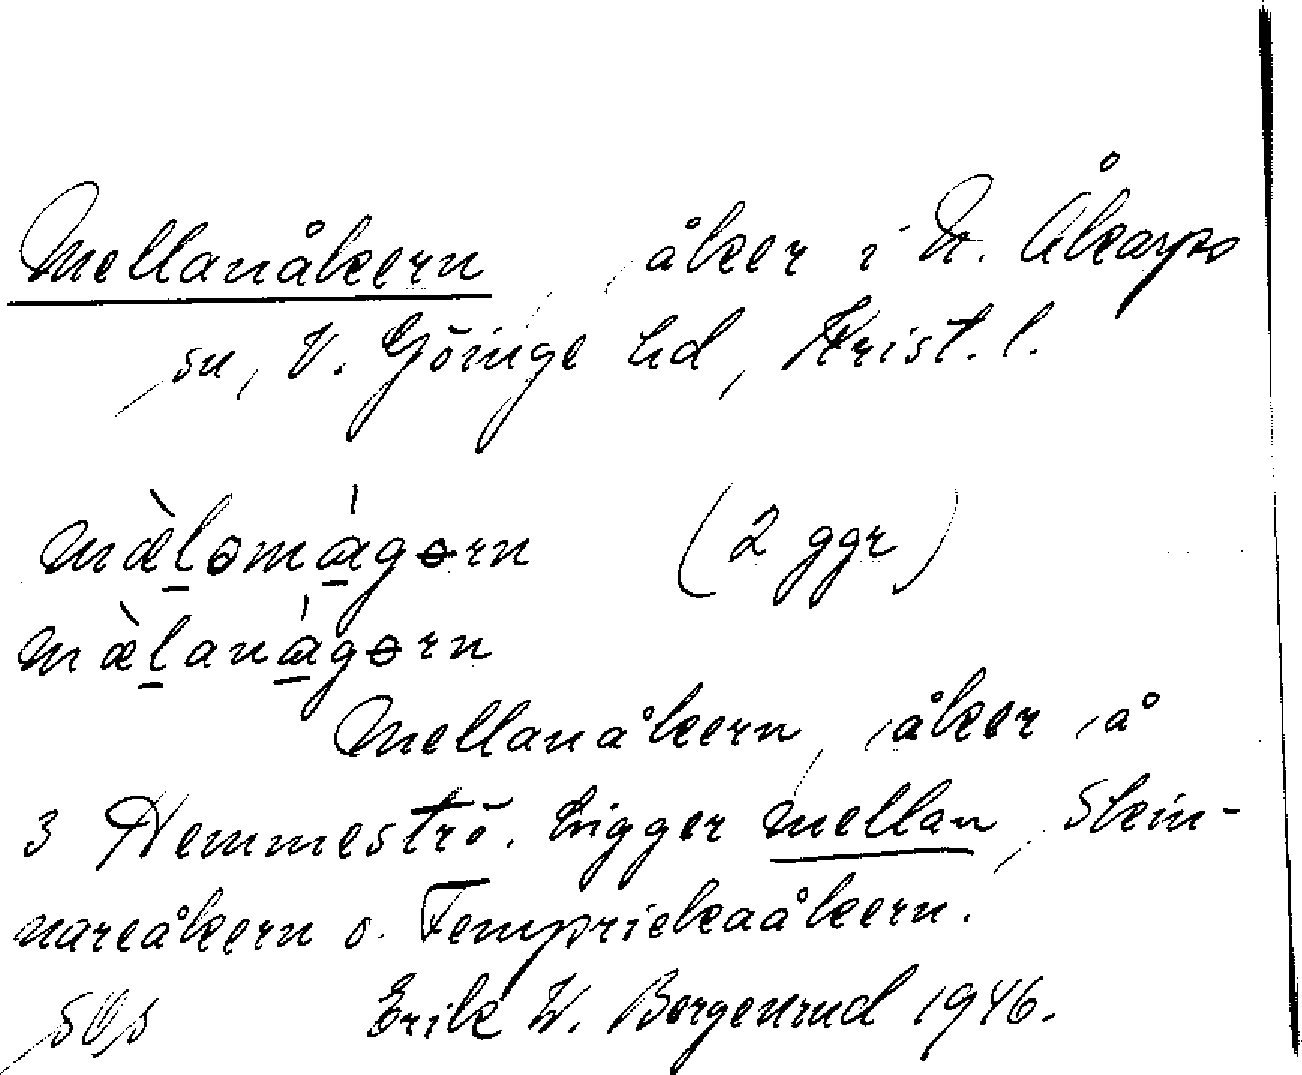 Mellanåkern, åker i N. Åkarps
sn, V. Göinge hd, Krist. l.
mæ̀l̠əmá̠gərn (2 ggr)
mæ̀l̠aná̠gərn
Mellanåkern, åker å
3 Hemmeströ. Ligger mellan Stein-
nareåkern o. Femprickaåkern.
Erik W. Bergenrud 1946.